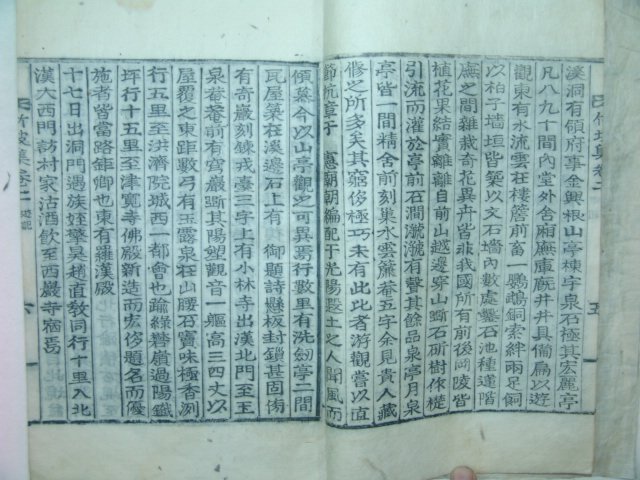 溪洞有領府事金興根山亭棟宇泉石極其宏麗亭
凡八九十間內堂外舍厨廡庫廐井井具備扁以遊
觀東有水流雲在樓簷前畜一鸚鵡銅索絆兩足飼
以柏子墻垣皆築以文石墻內數處鑿石池種蓮階
廡之間雜栽奇花異卉皆非我國所有前後岡陵皆
植花果結實離離自前山越邊穿山斲石斫樹依槎
引流而灌於亭前石澗瀧瀧有聲其餘品泉亭月泉
亭皆一間精舍前刻巢水雲簾菴五字余見貴人藏
修之所多矣其窮侈極巧未有此比者游觀嘗以直
節抗章于 憲廟朝編配于光陽殿土之人聞風而
傾慕今以山亭觀之可異焉行數里有洗劍亭二間
瓦屋築在溪邊石上有 御題詩懸板封鎖甚固傍
有奇巖刻鍊戎臺三字上有小林寺出漢北門至玉
泉菴菴前有窍巖斲其陽塑觀音一軀高三四丈以
屋覆之東距數弓有玉露泉在山腰石竇味極香冽
行五里至洪濟院城西一都會也踰綠礬嶺過陽鐵
坪行十五里至津寬寺佛殿新造而宏侈題名而優
施者皆當路鉅卿也東有羅漢殿
十七日出洞門遇族姪擎吳趙直敎同行十里入北
漢大西門訪村家沽酒飮至西巖寺宿焉
竹坡集卷二
五
竹坡集卷二
六